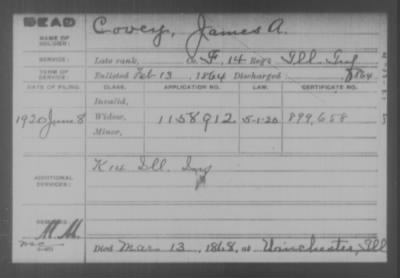 DEAD
NAME OF SOLDIER: Covey, James A.
SERVICE: Late rank, Co. F, 14 Reg't Ill. Inf
TERM OF SERVICE: Enlisted Feb 13, 1864 Discharged 1864
DATE OF FILING. CLASS. APPLICATION NO. LAW. CERTIFICATE NO.
Invalid,
1920 June 8 Widow, 1158912 5-1-20 899,658
Minor,
ADDITIONAL SERVICES: K 14 Ill. Inf
REMARKS:
M.M.
Died Mar 13, 1868, at Winchester, Ill